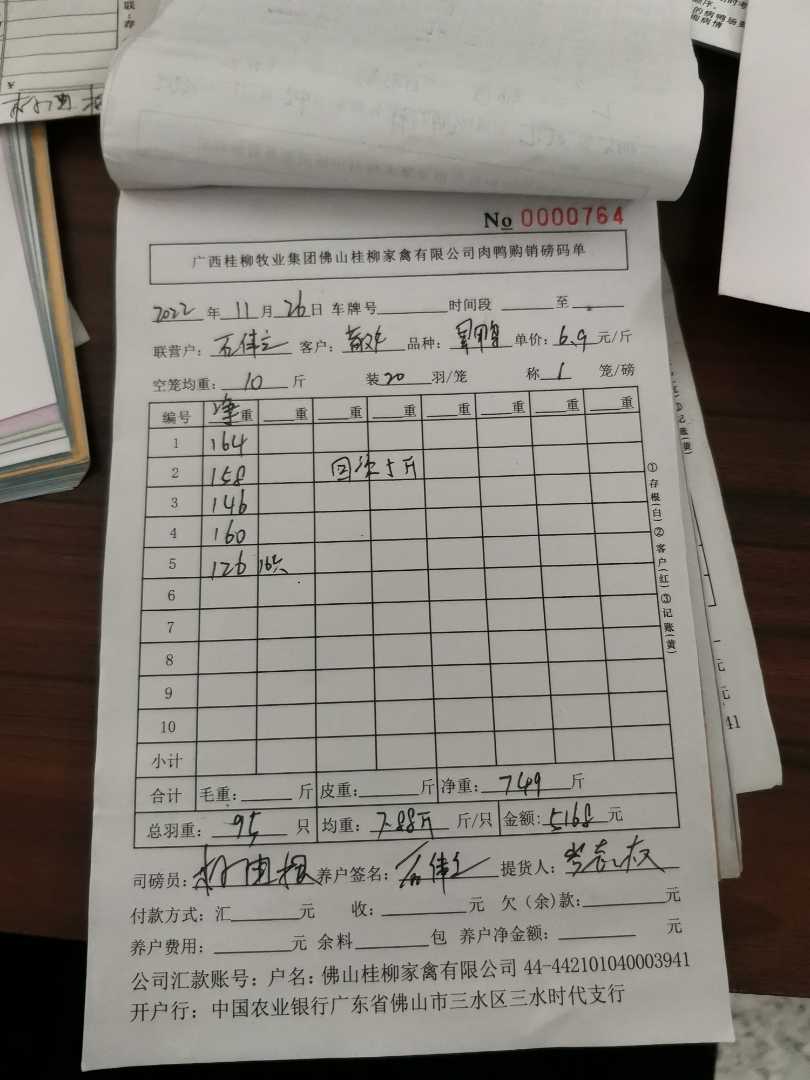 No 0000764
广西桂柳牧业集团佛山桂柳家禽有限公司肉鸭购销磅码单
2022年11月26日 车牌号 时间段 至
联营户：石伟立 客户： 品种： 单价：6.9元/斤
空笼均重：10斤 装20羽/笼 称1笼/磅
编号 净重 重 重 重 重 重 重 重
1 164
2 158 回凉5斤
3 146
4 160
5 126 16只
6
7
8
9
10
小计
合计 毛重： 斤 皮重： 斤 净重：749斤
总羽重：95只 均重：7.88斤 斤/只 金额：5168元
司磅员： 养户签名：石伟立 提货人：
付款方式：汇 元 收： 元 欠（余）款： 元
养户费用： 元 余料 包 养户净金额： 元
公司汇款账号：户名：佛山桂柳家禽有限公司 44-442101040003941
开户行：中国农业银行广东省佛山市三水区三水时代支行
①存根（白）②客户（红）③记账（黄）